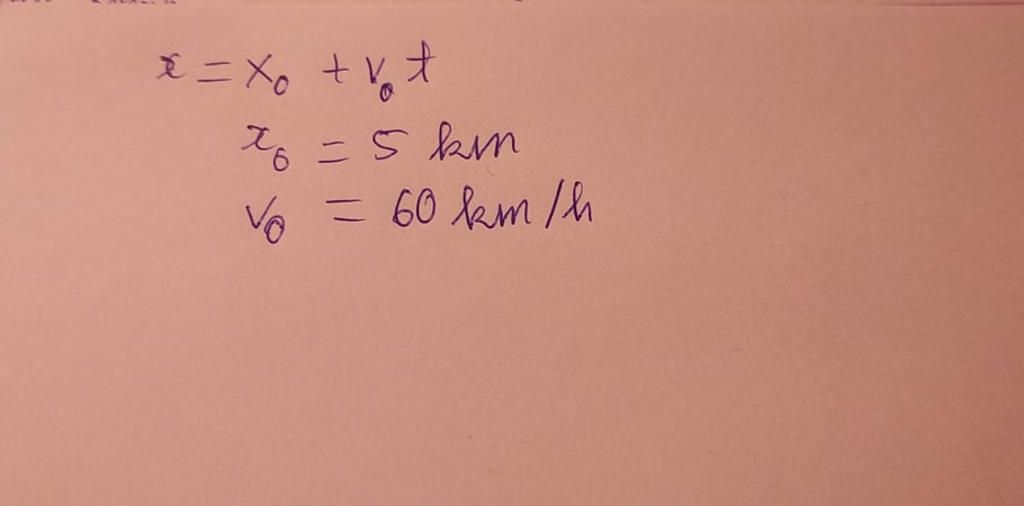 x = x₀ + v₀ t
x₀ = 5 km
v₀ = 60 km/h